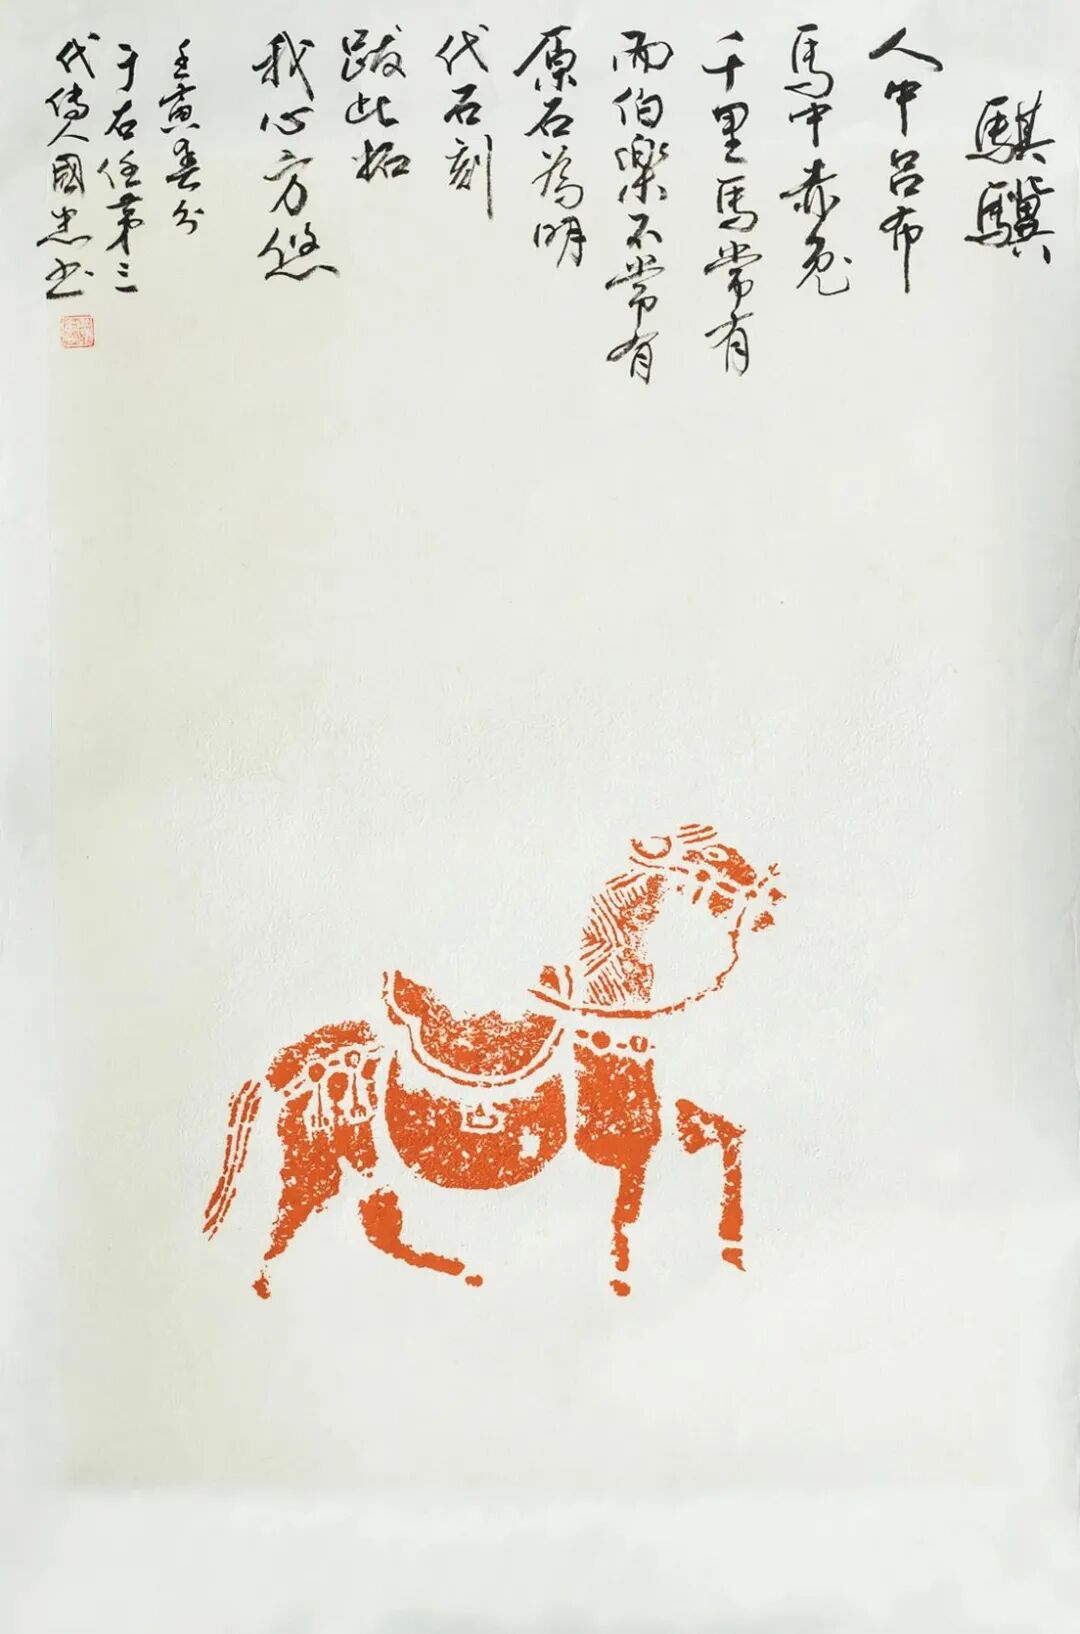 騏驥
人中呂布
馬中赤兔
千里馬常有
而伯樂不常有
原石為明
代石刻
跋此拓
我心方悠
壬寅春分
于右任第三
代傳人國忠书